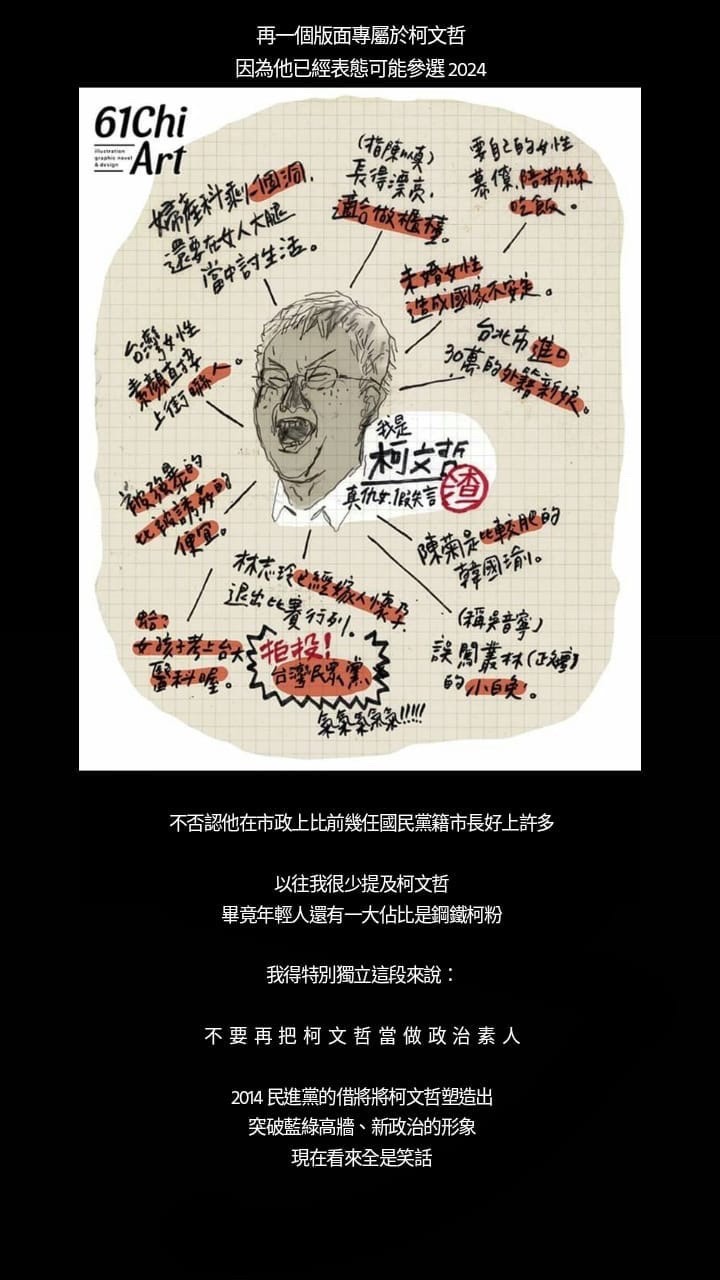 再一個版面專屬於柯文哲
因為他已經表態可能參選2024
61Chi
illustration
graphic novel
& design
Art
婦產科剩一個洞，
還要在女人大腿
當中討生活。
(指陳以真)
長得漂亮，
適合做櫃檯。
要自己的女性
幕僚，陪粉絲
吃飯。
未婚女性
造成國家不安定。
台北市進口
30萬的外籍新娘。
台灣女性
素顏直接
上街嚇人。
我是
柯文哲
真仇女．假失言
渣
被強暴的
比被誘姦的
便宜。
陳菊是比較肥的
韓國瑜。
林志玲已經嫁人懷孕
退出比賽行列。
(稱吳音寧)
誤闖叢林(正確)
的小白兔。
蛤？
女孩子考上台大
醫科喔。
拒投！
台灣民眾黨
氣氣氣氣氣!!!!!
不否認他在市政上比前幾任國民黨籍市長好上許多
以往我很少提及柯文哲
畢竟年輕人還有一大佔比是鋼鐵柯粉
我得特別獨立這段來說：
不要再把柯文哲當做政治素人
2014 民進黨的借將將柯文哲塑造出
突破藍綠高牆、新政治的形象
現在看來全是笑話